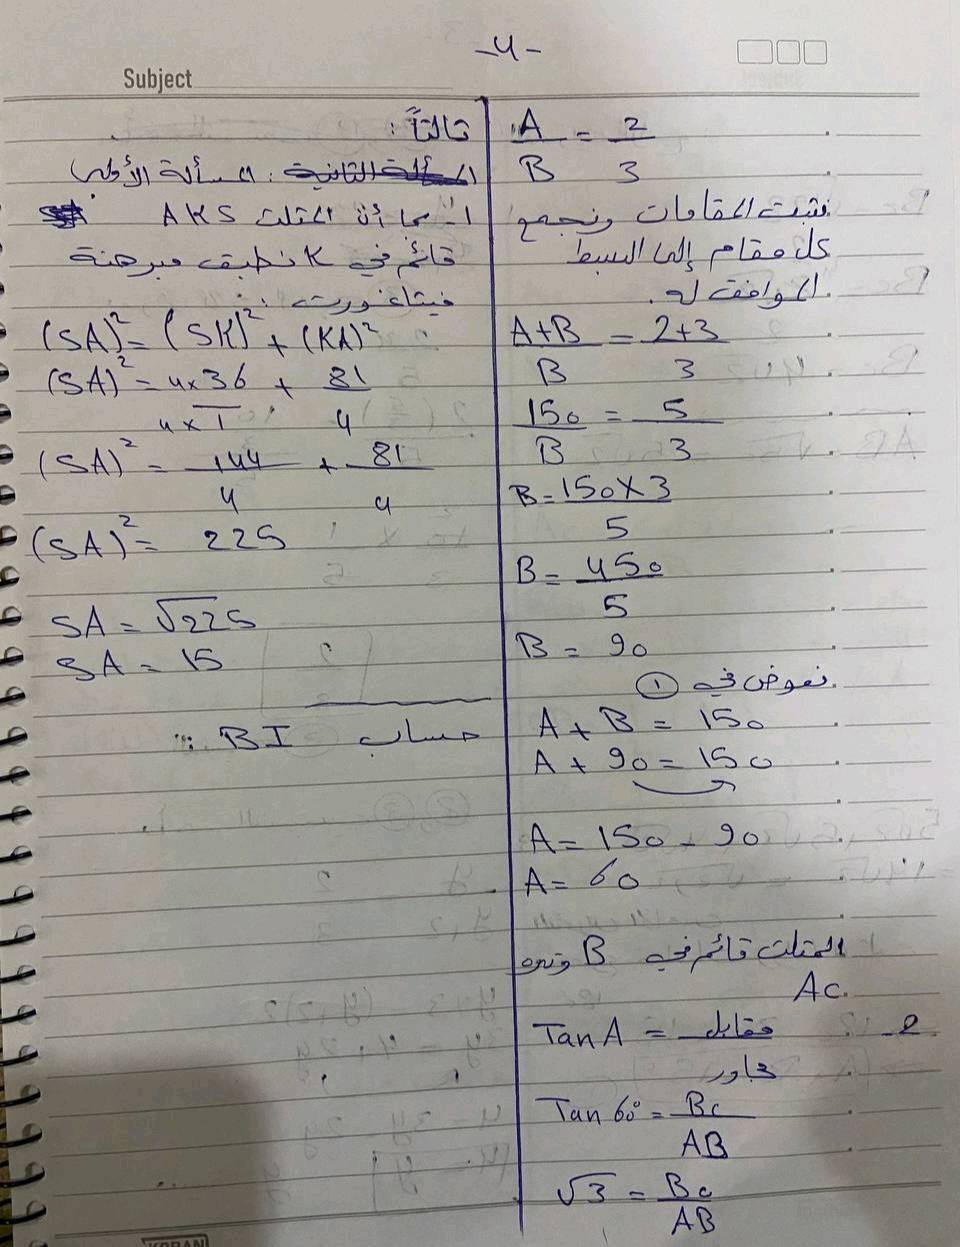 -4-
Subject
A/B = 2/3
نثبت المقامات ونجمع
كل مقام إلى البسط
الموافق له.
A+B/B = 2+3/3
150/B = 5/3
B = 150×3/5
B = 450/5
B = 90
نعوض في ①
A + B = 150
A + 90 = 150
A = 150 - 90
A = 60
المثلث قائم في B وتره
AC.
2. Tan A = مقابل/مجاور
Tan 60° = BC/AB
√3 = BC/AB
ثالثاً:
المسألة الثانية: المسألة الأولى
1- بما أن المثلث AKS
قائم في K نطبق مبرهنة
فيثاغورث:
(SA)² = (SK)² + (KA)²
(SA)² = 4×36/4×1 + 81/4
(SA)² = 144/4 + 81/4
(SA)² = 225
SA = √225
SA = 15
حساب BI:
KORAN